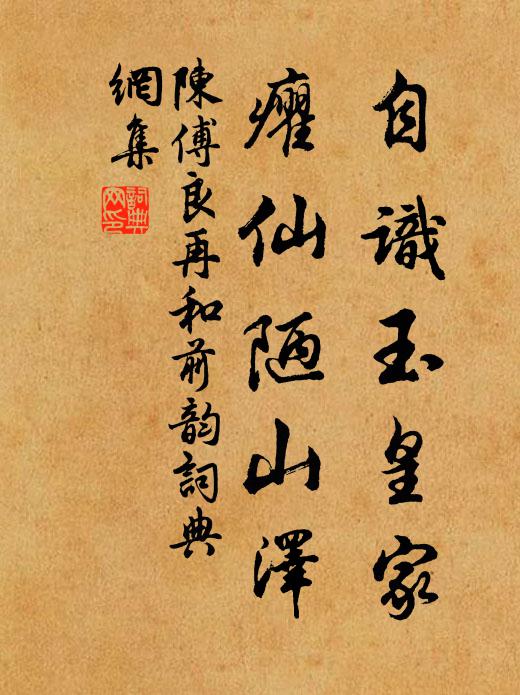 自識玉皇家
癯仙陋山澤
陳傅良再和前韵詞典
網集
詞典網印